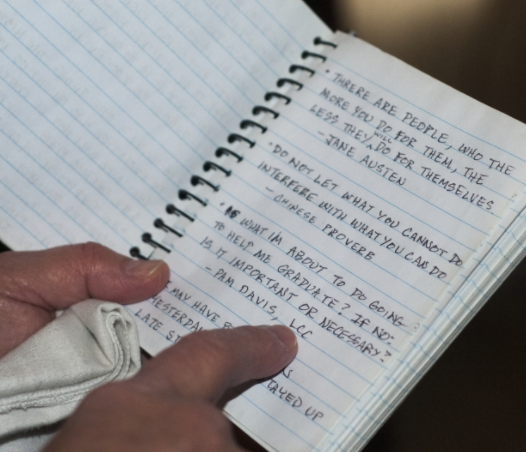 • THRERE ARE PEOPLE, WHO THE
MORE YOU DO FOR THEM, THE
LESS THEY WILL DO FOR THEMSELVES
- JANE AUSTEN
• DO NOT LET WHAT YOU CANNOT DO
INTERFERE WITH WHAT YOU CAN DO
- CHINESE PROVERB
• WHAT IM ABOUT TO DO GOING
TO HELP ME GRADUATE? IF NO:
IS IT IMPORTANT OR NECESSARY?
- PAM DAVIS, LCC
MAY HAVE
YESTERDAY
LATE STAYED UP